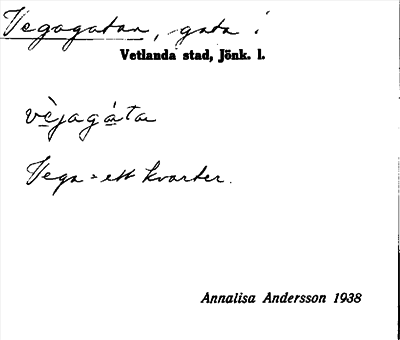 Vegagatan, gata i
Vetlanda stad, Jönk. l.
vèjagáta
Vega = ett kvarter.
Annalisa Andersson 1938